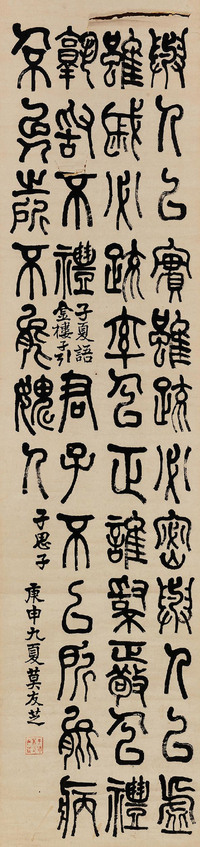 與人以實雖疏必密與人以虛
雖戚必疏率以正誰正敬以禮
孰敢不禮子夏語
金樓子引
君子不以所能病
之所不能媿人
子思子
庚申九夏莫友芝